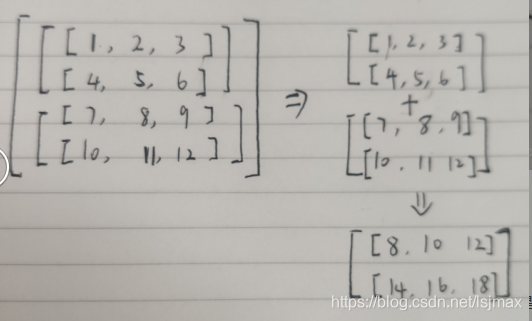 [ [ [ 1, 2, 3 ]
[ 4, 5, 6 ] ]
[ [ 7, 8, 9 ]
[ 10, 11, 12 ] ] ]
⇒
[ [ 1, 2, 3 ]
[ 4, 5, 6 ] ]
+
[ [ 7, 8, 9 ]
[ 10, 11 12 ] ]
⇓
[ [ 8, 10 12 ]
[ 14, 16, 18 ] ]
https://blog.csdn.net/lsjmax